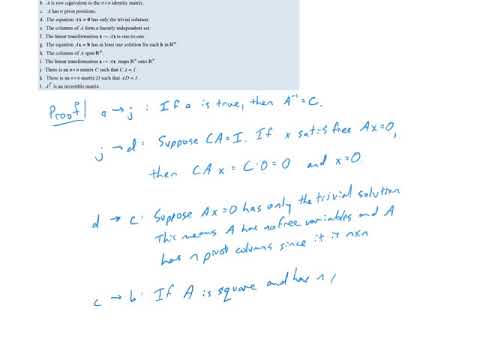 b. A is row equivalent to the n×n identity matrix.
c. A has n pivot positions.
d. The equation Ax = 0 has only the trivial solution.
e. The columns of A form a linearly independent set.
f. The linear transformation x → Ax is one-to-one.
g. The equation Ax = b has at least one solution for each b in ℝⁿ.
h. The columns of A span ℝⁿ.
i. The linear transformation x → Ax maps ℝⁿ onto ℝⁿ.
j. There is an n×n matrix C such that CA = I.
k. There is an n×n matrix D such that AD = I.
l. Aᵀ is an invertible matrix.
Proof a → j : If a is true, then A⁻¹ = C.
j → d : Suppose CA = I. If x satisfree Ax=0,
then CAx = C·0 = 0 and x=0
d → c : Suppose Ax=0 has only the trivial solution
This means A has no free variables and A
has n pivot columns since it is n×n
c → b : If A is square and has n